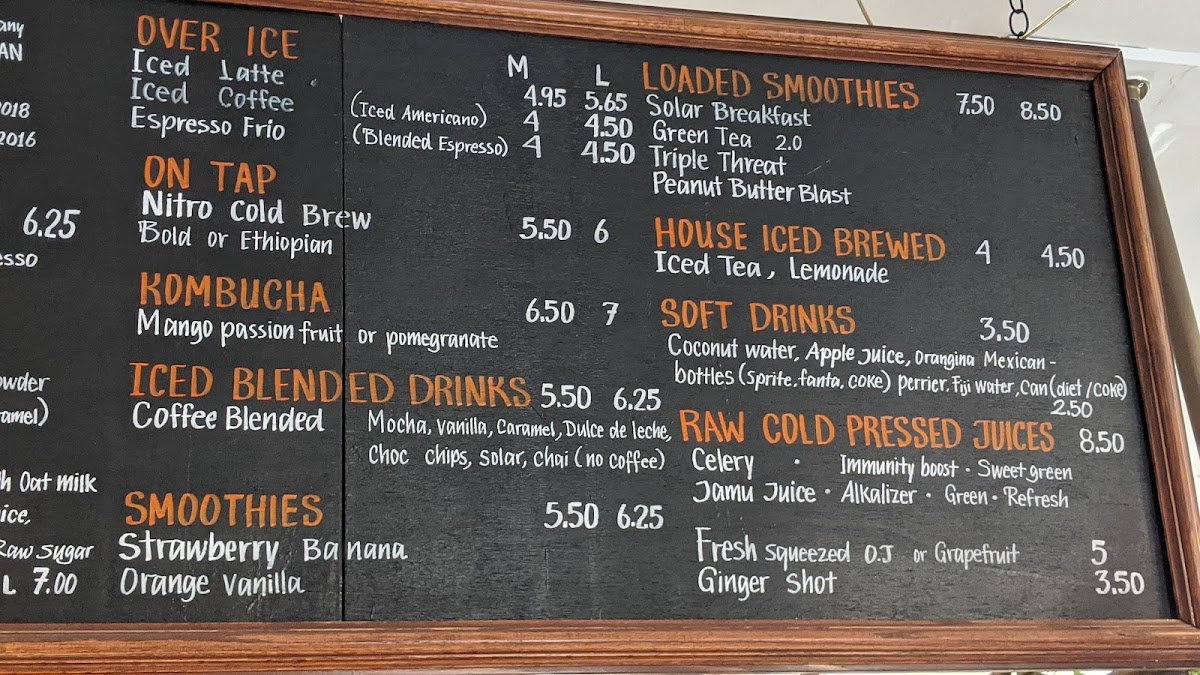 any
AN
2018
2016
6.25
esso
owder
amel)
h Oat milk
ice,
Raw sugar
L 7.00
OVER ICE
M L
Iced Latte 4.95 5.65
Iced Coffee (Iced Americano) 4 4.50
Espresso Frio (Blended Espresso) 4 4.50
ON TAP
Nitro Cold Brew 5.50 6
Bold or Ethiopian
KOMBUCHA 6.50 7
Mango passion fruit or pomegranate
ICED BLENDED DRINKS 5.50 6.25
Coffee Blended Mocha, Vanilla, Caramel, Dulce de leche,
Choc chips, Solar, Chai (no coffee)
SMOOTHIES 5.50 6.25
Strawberry Banana
Orange Vanilla
LOADED SMOOTHIES 7.50 8.50
Solar Breakfast
Green Tea 2.0
Triple Threat
Peanut Butter Blast
HOUSE ICED BREWED 4 4.50
Iced Tea, Lemonade
SOFT DRINKS 3.50
Coconut water, Apple Juice, Orangina Mexican-
bottles (Sprite.fanta, COKE) perrier, Fiji water, Can (diet/COKE)
2.50
RAW COLD PRESSED JUICES 8.50
Celery · Immunity boost · Sweet green
Jamu Juice · Alkalizer · Green · Refresh
Fresh Squeezed O.J or Grapefruit 5
Ginger Shot 3.50